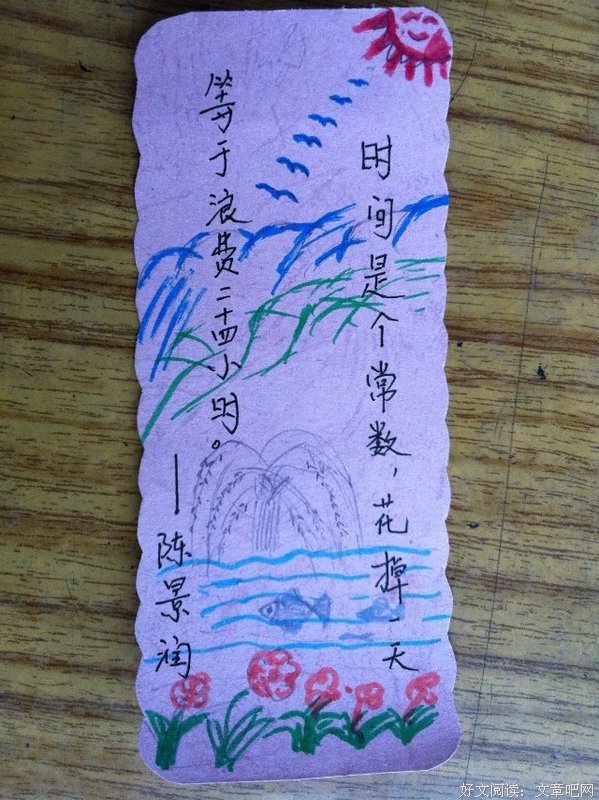 时间是个常数，花掉一天
等于浪费二十四小时。
——陈景润
好文阅读：文章吧网